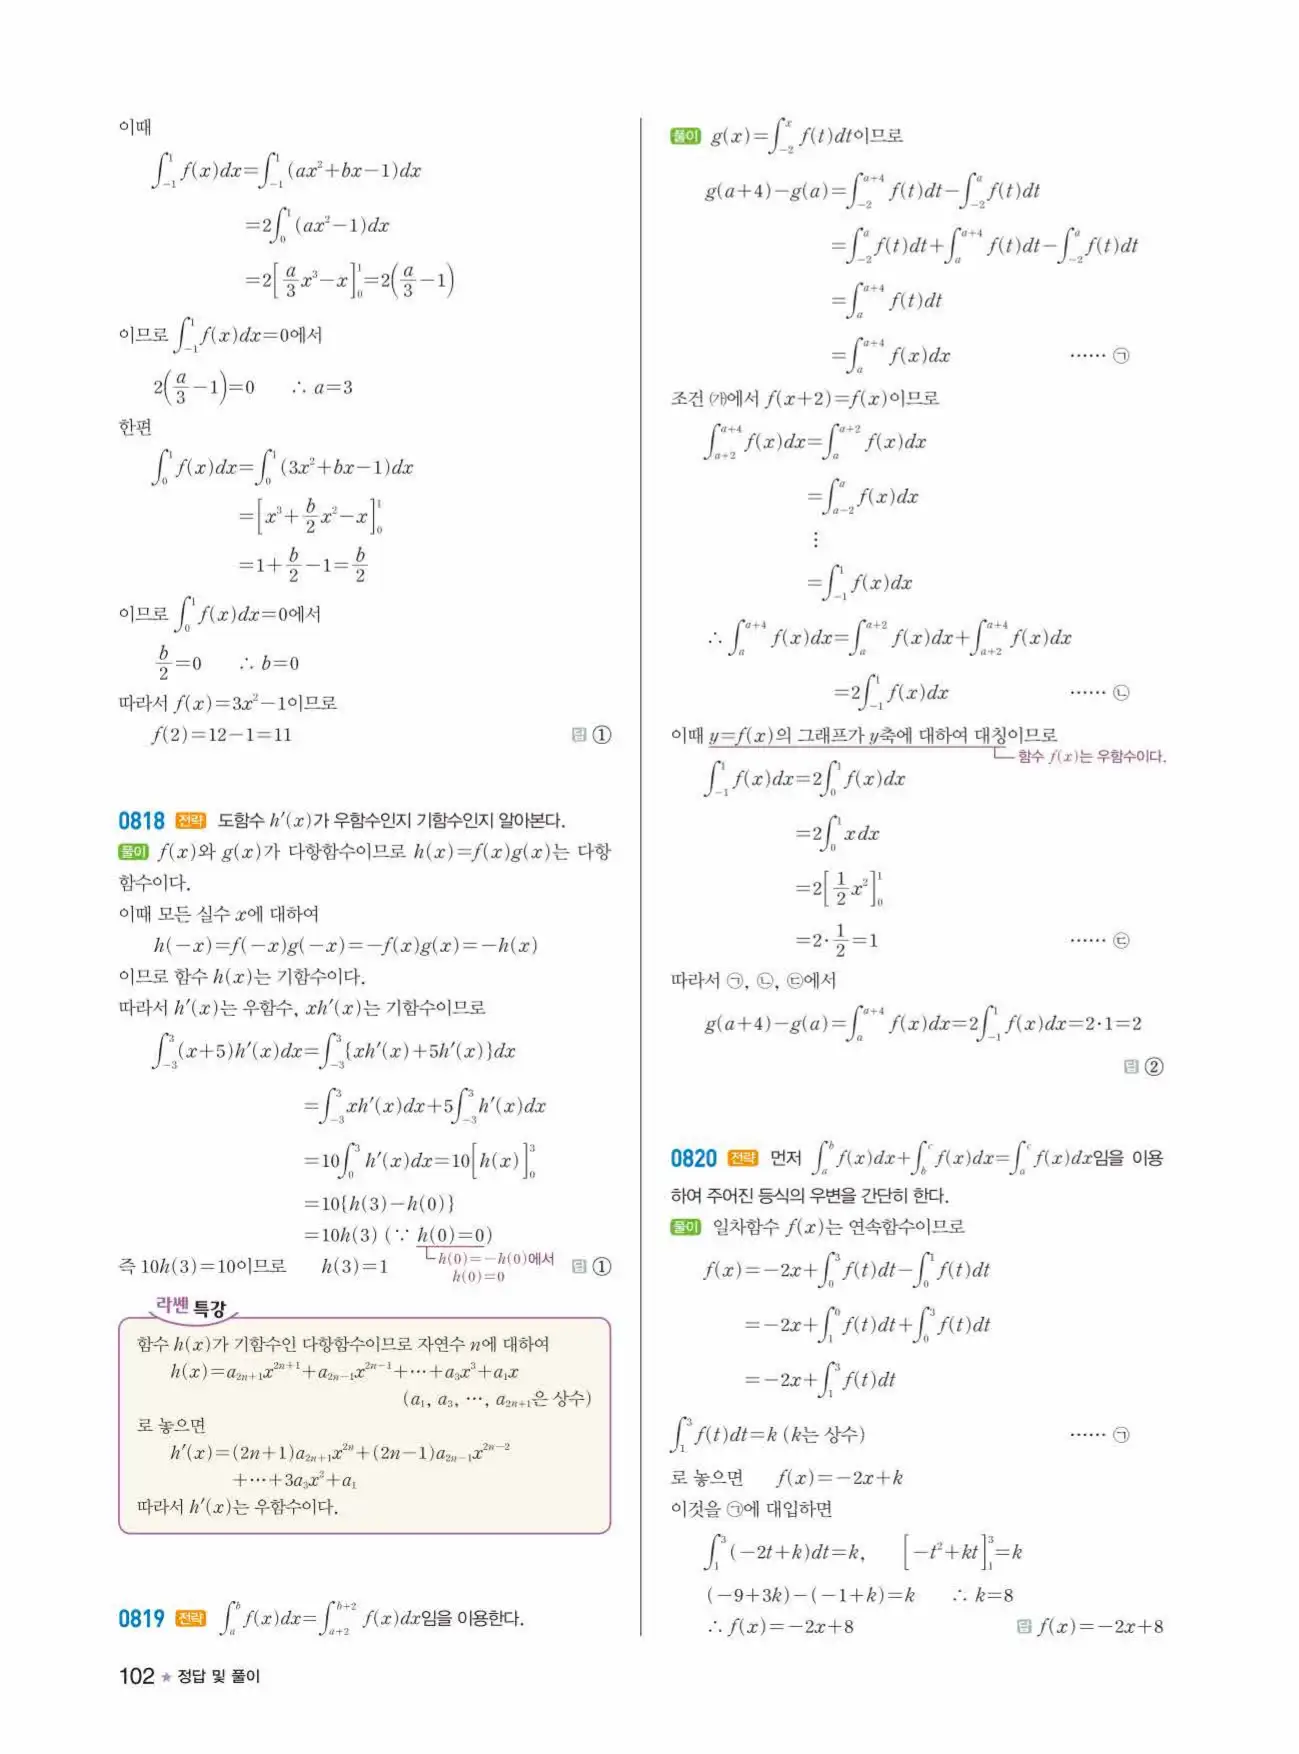 이때
∫₋₁¹ f(x)dx=∫₋₁¹ (ax²+bx-1)dx
=2∫₀¹ (ax²-1)dx
=2[a/3 x³-x]₀¹=2(a/3-1)
이므로 ∫₋₁¹ f(x)dx=0에서
2(a/3-1)=0 ∴ a=3
한편
∫₀¹ f(x)dx=∫₀¹ (3x²+bx-1)dx
=[x³+b/2 x²-x]₀¹
=1+b/2-1=b/2
이므로 ∫₀¹ f(x)dx=0에서
b/2=0 ∴ b=0
따라서 f(x)=3x²-1이므로
f(2)=12-1=11 답 ①
0818 전략 도함수 h′(x)가 우함수인지 기함수인지 알아본다.
풀이 f(x)와 g(x)가 다항함수이므로 h(x)=f(x)g(x)는 다항
함수이다.
이때 모든 실수 x에 대하여
h(-x)=f(-x)g(-x)=-f(x)g(x)=-h(x)
이므로 함수 h(x)는 기함수이다.
따라서 h′(x)는 우함수, xh′(x)는 기함수이므로
∫₋₃³(x+5)h′(x)dx=∫₋₃³{xh′(x)+5h′(x)}dx
=∫₋₃³ xh′(x)dx+5∫₋₃³ h′(x)dx
=10∫₀³ h′(x)dx=10[h(x)]₀³
=10{h(3)-h(0)}
=10h(3) (∵ h(0)=0)
즉 10h(3)=10이므로 h(3)=1 답 ①
h(0)=-h(0)에서
h(0)=0
라쎈 특강
함수 h(x)가 기함수인 다항함수이므로 자연수 n에 대하여
h(x)=a₂ₙ₊₁x²ⁿ⁺¹+a₂ₙ₋₁x²ⁿ⁻¹+⋯+a₃x³+a₁x
(a₁, a₃, ⋯, a₂ₙ₊₁은 상수)
로 놓으면
h′(x)=(2n+1)a₂ₙ₊₁x²ⁿ+(2n-1)a₂ₙ₋₁x²ⁿ⁻²
+⋯+3a₃x²+a₁
따라서 h′(x)는 우함수이다.
0819 전략 ∫_a^b f(x)dx=∫_{a+2}^{b+2} f(x)dx임을 이용한다.
102 ★ 정답 및 풀이
풀이 g(x)=∫₋₂^x f(t)dt이므로
g(a+4)-g(a)=∫₋₂^{a+4} f(t)dt-∫₋₂^a f(t)dt
=∫₋₂^a f(t)dt+∫_a^{a+4} f(t)dt-∫₋₂^a f(t)dt
=∫_a^{a+4} f(t)dt
=∫_a^{a+4} f(x)dx ⋯⋯ ㉠
조건 ㈎에서 f(x+2)=f(x)이므로
∫_{a+2}^{a+4} f(x)dx=∫_a^{a+2} f(x)dx
=∫_{a-2}^a f(x)dx
⋮
=∫₋₁¹ f(x)dx
∴ ∫_a^{a+4} f(x)dx=∫_a^{a+2} f(x)dx+∫_{a+2}^{a+4} f(x)dx
=2∫₋₁¹ f(x)dx ⋯⋯ ㉡
이때 y=f(x)의 그래프가 y축에 대하여 대칭이므로
함수 f(x)는 우함수이다.
∫₋₁¹ f(x)dx=2∫₀¹ f(x)dx
=2∫₀¹ xdx
=2[1/2 x²]₀¹
=2·1/2=1 ⋯⋯ ㉢
따라서 ㉠, ㉡, ㉢에서
g(a+4)-g(a)=∫_a^{a+4} f(x)dx=2∫₋₁¹ f(x)dx=2·1=2
답 ②
0820 전략 먼저 ∫_a^b f(x)dx+∫_b^c f(x)dx=∫_a^c f(x)dx임을 이용
하여 주어진 등식의 우변을 간단히 한다.
풀이 일차함수 f(x)는 연속함수이므로
f(x)=-2x+∫₀³ f(t)dt-∫₀¹ f(t)dt
=-2x+∫₁⁰ f(t)dt+∫₀³ f(t)dt
=-2x+∫₁³ f(t)dt
∫₁³ f(t)dt=k (k는 상수) ⋯⋯ ㉠
로 놓으면 f(x)=-2x+k
이것을 ㉠에 대입하면
∫₁³ (-2t+k)dt=k, [-t²+kt]₁³=k
(-9+3k)-(-1+k)=k ∴ k=8
∴ f(x)=-2x+8 답 f(x)=-2x+8